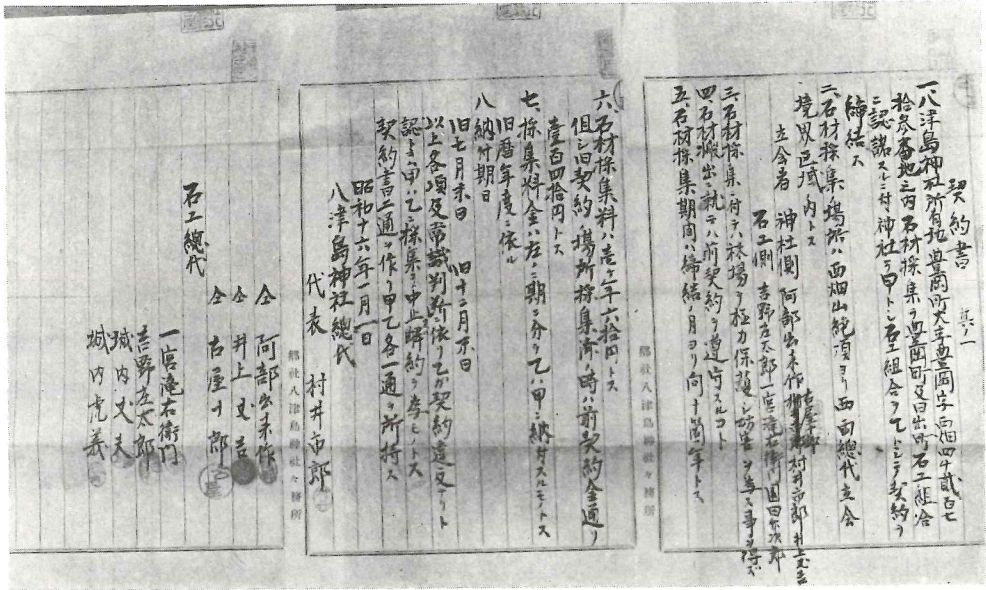 契約書 其一
一、八津島神社所有地豊岡町大字豊岡字西畑四千貳百七
拾参番地之内石材採集ヲ豊岡町及日出町石工組合
ニ認諾スルニ付神社ヲ甲トシ石工組合ヲ乙トシテ契約ヲ
締結ス
二、石材採集場所ハ西畑山絶頂ヨリ西面総代立会
境界区域内トス
立会者 神社側 阿部出来作 古屋十郎 村井市郎 井上又吉
石工側 吉野左太郎 一宮滝右衛門 園田弥次郎
三、石材採集ニ付テハ林場ヲ極力保護シ妨害ヲ与ス事ヲ得ズ
四、石材搬出ニ就テハ前契約ヲ遵守スルコト
五、石材採集期間ハ締結ノ月ヨリ向十箇年トス
六、石材採集料ハ壱ヶ年六拾円トス
但シ旧契約ノ場所採集済ノ時ハ前契約金通リ
壹百四拾円トス
七、採集料金ハ左ノ二期ニ分ケ乙ハ甲ニ納付スルモノトス
旧暦年度ニ依ル
八納付期日
旧七月末日 旧十二月末日
以上各項及常識判断ニ依リ乙ガ契約違反ナリト
認ムトキハ甲ハ乙ニ採集ヲ中止解約ヲ為モノトス
契約書二通ヲ作リ甲乙各一通ヲ所持ス
昭和十六年一月一日
八津島神社總代
代表 村井市郎
郷社八津島神社々務所
仝 阿部出来作
仝 井上又吉
仝 古屋十郎
石工總代
一宮滝右衛門
吉野左太郎
城内又夫
城内虎義
郷社八津島神社々務所